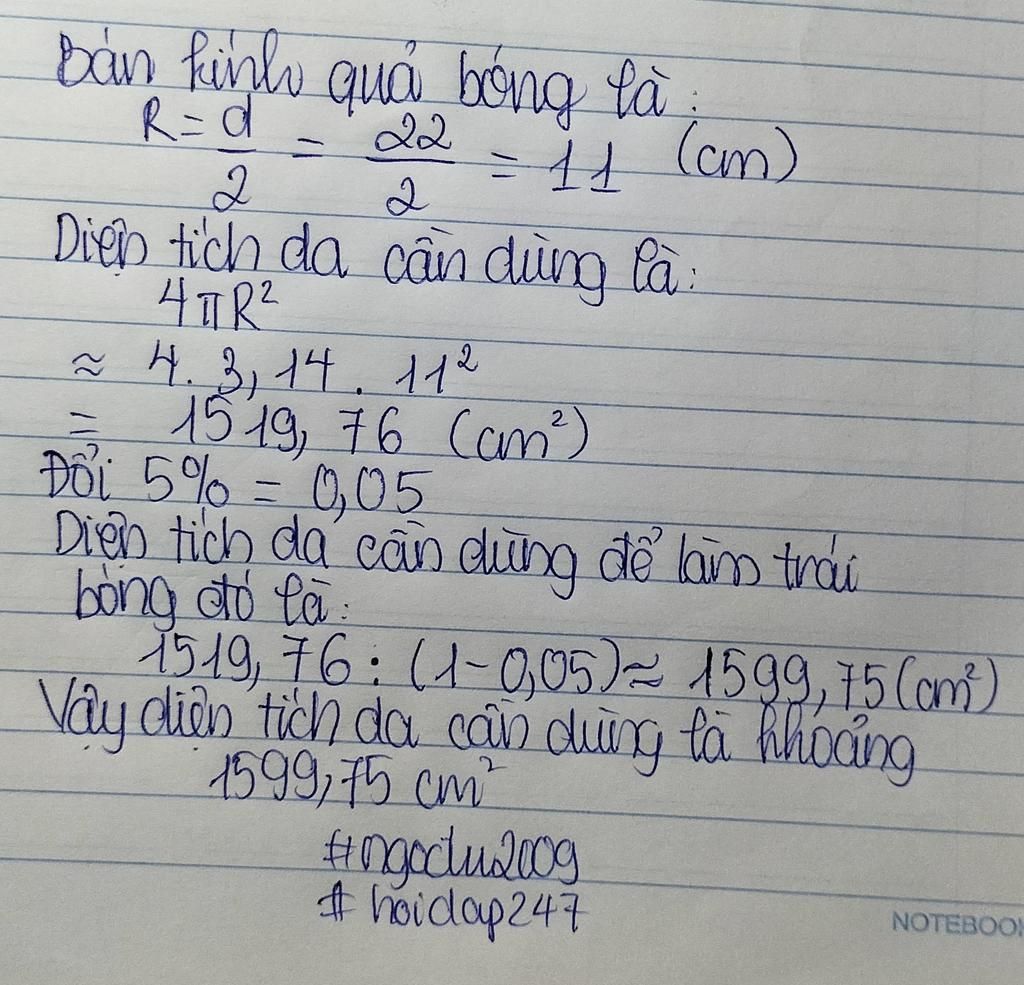 Bán kính quả bóng là:
R = d/2 = 22/2 = 11 (cm)
Diện tích da cần dùng là:
4πR²
≈ 4. 3,14. 11²
= 1519,76 (cm²)
Đổi 5% = 0,05
Diện tích da cần dùng để làm trái
bóng đó là:
1519,76 : (1-0,05) ≈ 1599,75 (cm²)
Vậy diện tích da cần dùng là khoảng
1599,75 cm²
#ngoclu2009
#hoidap247
NOTEBOOK